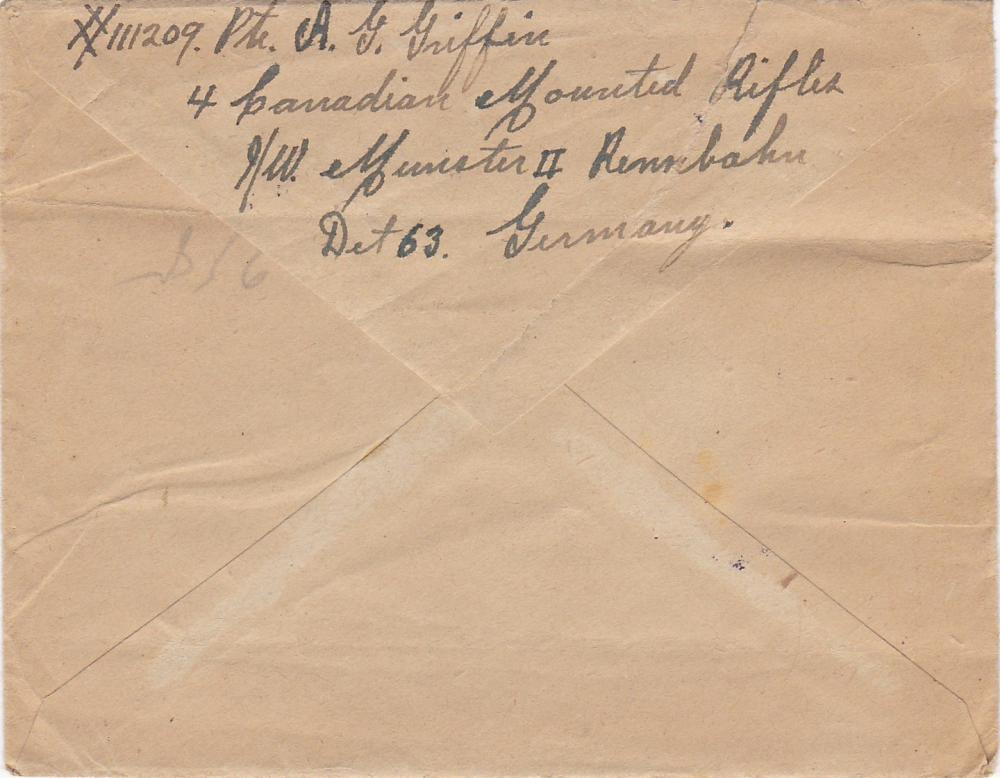 #111209. Pte. A. G. Griffin
4 Canadian Mounted Rifles
P/W. Munster II Rennbahn
Det 63. Germany.